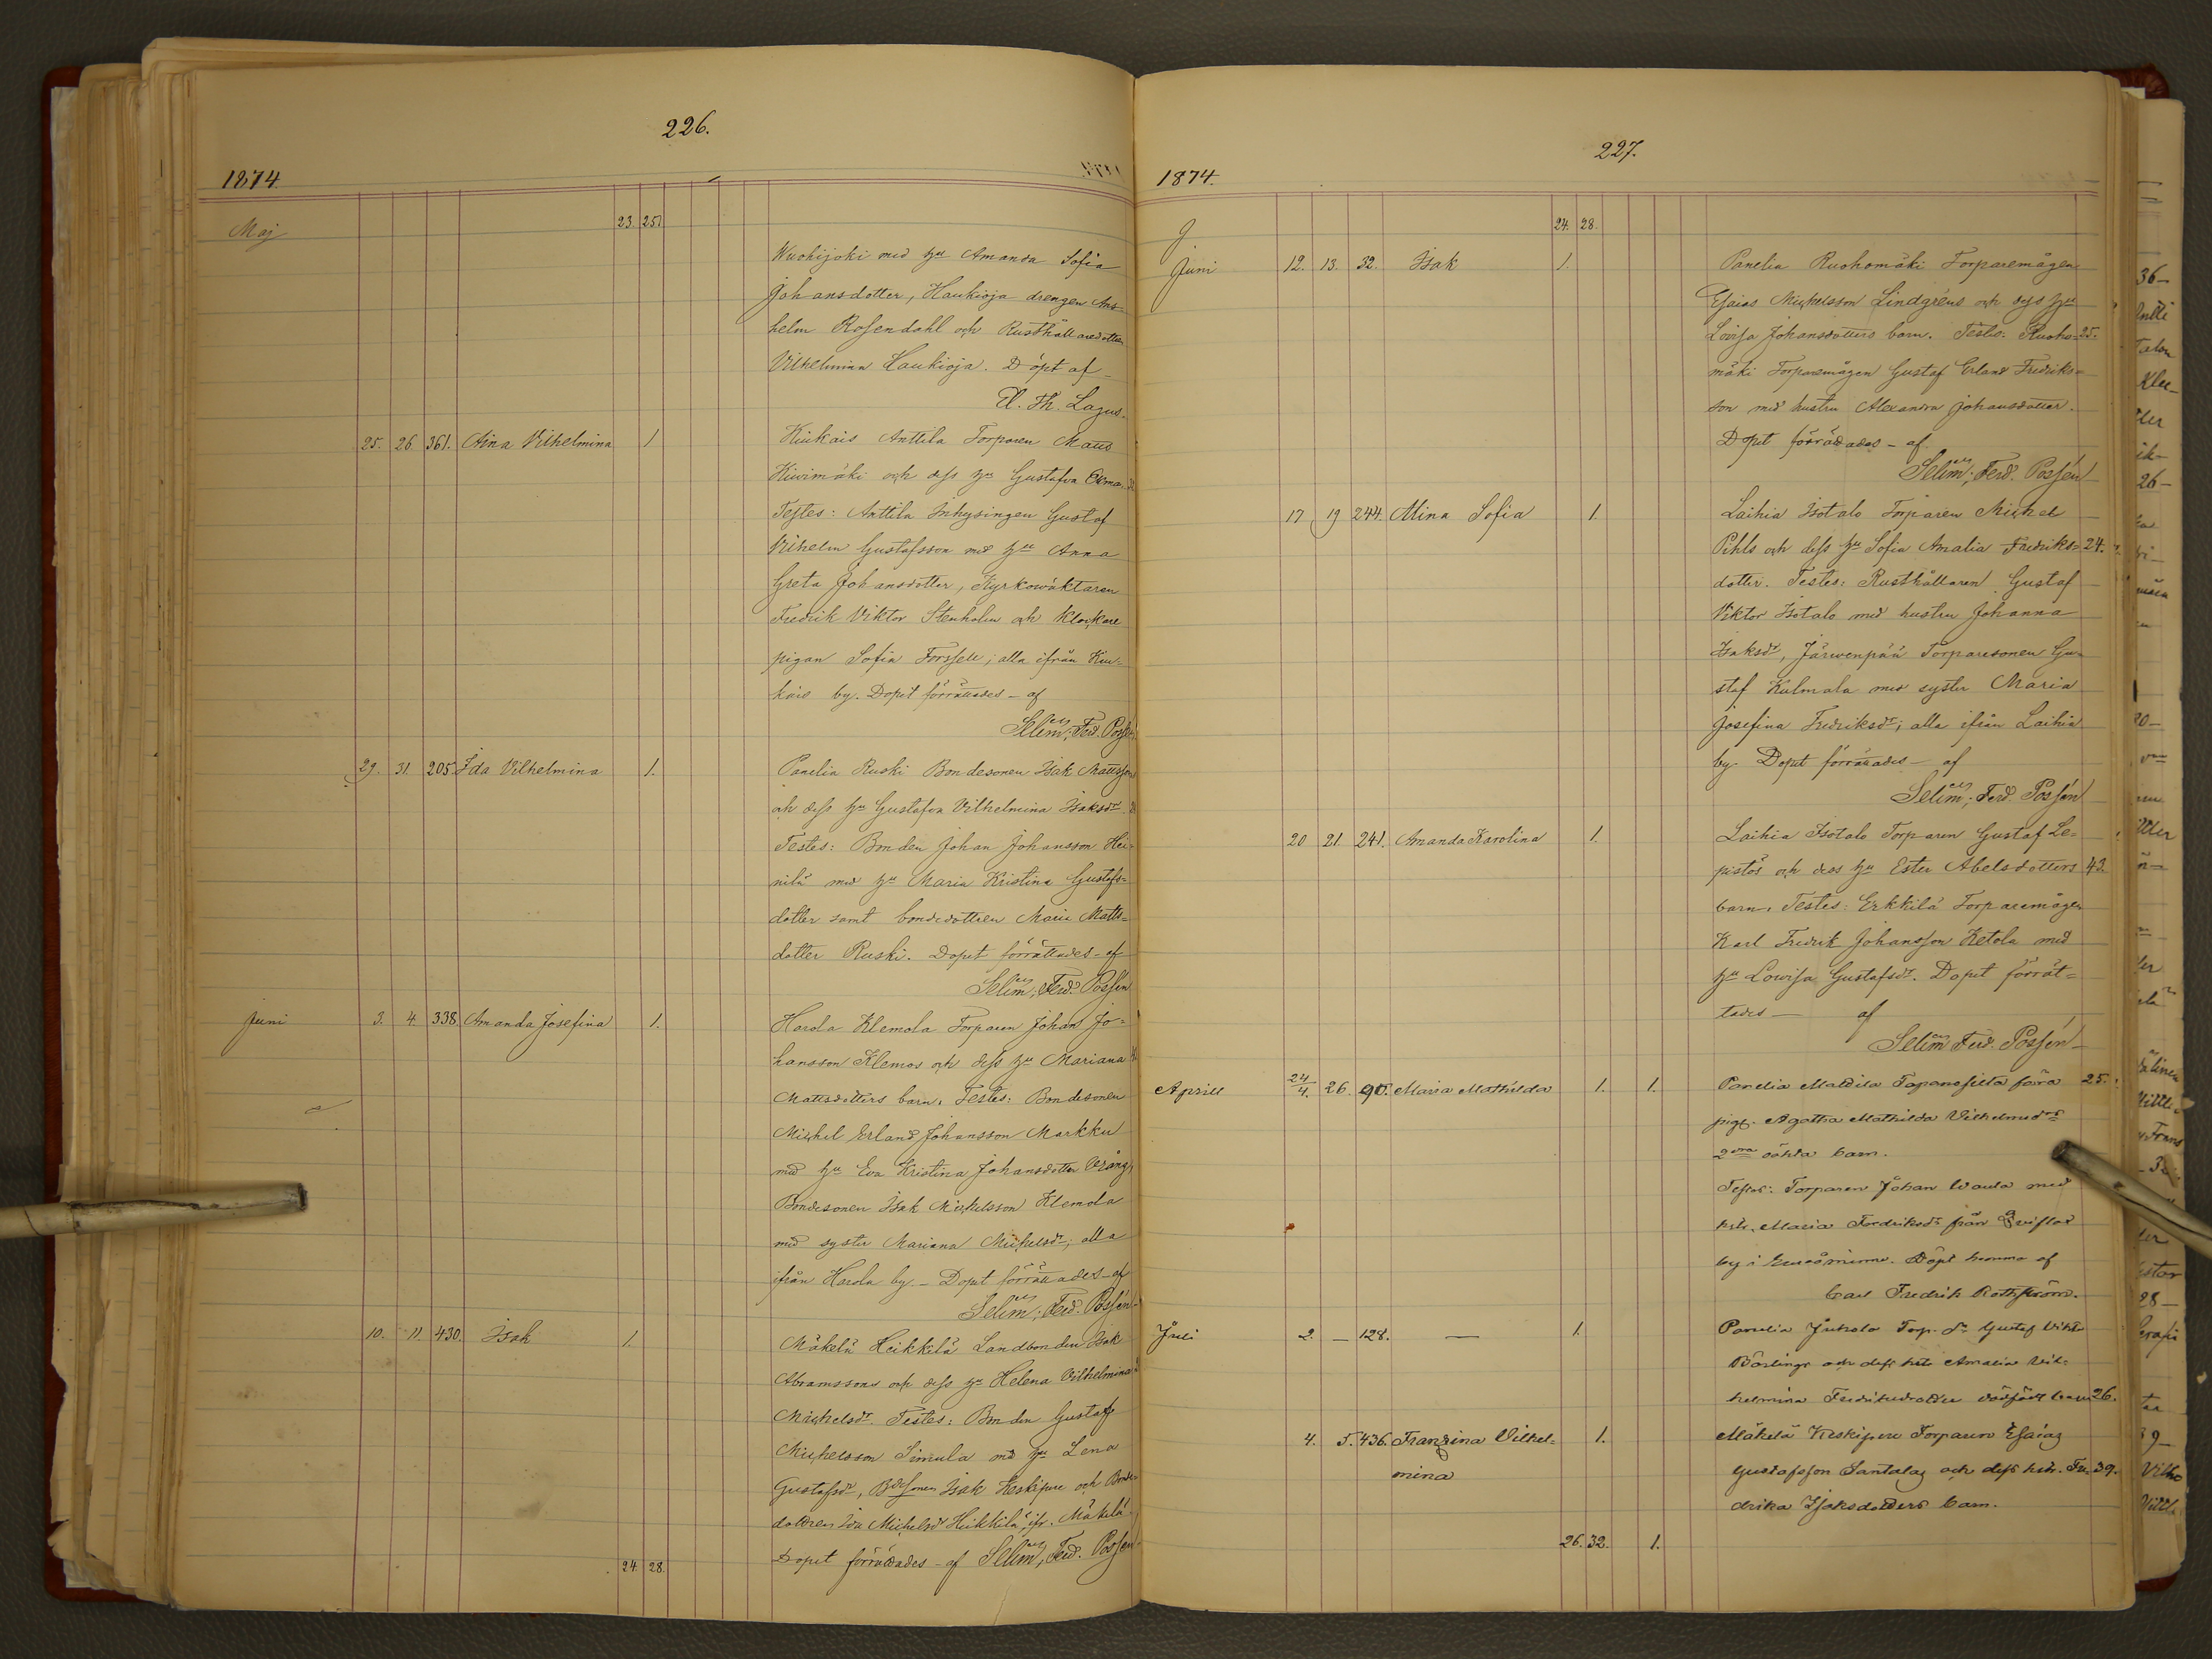 226.
1874
Maj
23. 25.
Wuohijoki med hu Amanda Sofia
Johansdotter, Haukioja drengen Ans=
helm Rosendahl och Rusthållaredotter
Vilhelmina Haukioja. Döpt af
Th. Lagus.
25. 26. 361. Aina Vilhelmina 1 Kiukais Anttila Torparen Matts
Kiwimäki och dess hu Gustafva
Testes: Anttila Inhysingen Gustaf
Vilhelm Gustafsson med hu Anna
Greta Johansdotter, Kyrkowäktaren
Fredrik Viktor Stenholm och Klockare
pigan Sofia Forssell; alla ifrån Kiu=
kais by. Dopet förrättades - af
Selim; Ferd. Possén
29. 31. 205 Ida Vilhelmina 1. Panelia Ruski Bondesonen Isak Mattsson
och dess hu Gustafva Vilhelmina Isaksdr
Testes: Bonden Johan Johansson Hei=
nilä med hu Maria Kristina Gustafs=
dotter samt bondedottren Maria Matts=
dotter Ruski. Dopet förrättades - af
Selim; Ferd. Possén
Juni 3. 4. 338 Amanda Josefina 1. Harola Klemola Torparen Johan Jo=
hansson Klemos och dess hu Mariana
Mattsdotters barn. Testes: Bondesonen
Michel Erland Johansson Markku
med hu Eva Kristina Johansdotter
Bondesonen Isak Michelsson Klemola
med syster Mariana Michelsdr; alla
ifrån Harola by. - Dopet förrättades - af
Selim; Ferd. Possén
10. 11. 430. Isak 1. Mäkelä Heikkilä Landbonden Isak
Abramssons och dess hu Helena Vilhelmina
Michelsdr. Testes: Bonden Gustaf
Michelsson Simula med hu Lena
Gustafsdr, Isak Keskipere och Bonde=
dottren Ida Michelsdr Heikkilä, ifr. Mäkelä.
Dopet förrättades - af Selim; Ferd. Possén
24. 28.
227.
1874.
24. 28.
Juni 12. 13. 32. Isak 1. Panelia Ruohomäki Torparemågen
Esaias Michelsson Lindgréns och dess hu
Lovisa Johansdotters barn. Testes: Ruoho= 25.
mäki Torparemågen Gustaf Erland Fredriks=
son med hustru Alexandra Johansdotter.
Dopet förrättades - af
Selim; Ferd. Possén
17 19 244. Mina Sofia 1. Laihia Isotalo Torparen Michel
Pihls och dess hu Sofia Amalia Fredriks= 24.
dotter. Testes: Rusthållaren Gustaf
Viktor Isotalo med hustru Johanna
Isaksdr, Järwenpää Torparesonen Gu=
staf Kulmala med syster Maria
Josefina Fredriksdr; alla ifrån Laihia
by. Dopet förrättades - af
Selim; Ferd. Possén
20 21. 241. Amanda Karolina 1. Laihia Isotalo Torparen Gustaf Le=
pistös och dess hu Ester Abelsdotters 43.
barn. Testes: Erkkilä Torparemågen
Karl Fredrik Johansson Ketola med
hu Lowisa Gustafsdr. Dopet förrät=
tades - af
Selim Ferd. Possén
Aprill 24/4. 26. 90. Maria Mathilda 1. 1. Panelia Mattila 25.
pig. Agatha Mathilda Vilhelmsdrs
2dra oäkta barn.
Testes: Torparen Johan Waula med
hstr. Maria Fredriksdr från
by i Euraåminne. Döpt hemma af
Carl Fredrik Rothström.
Juli 2. — 128. — 1. Panelia Juhola Torp. Gustaf Vikt.
och dess hstr Amalia Vil=
helmina Fredriksdotters dödfödt barn 26.
4. 5. 436. Fransina Vilhel= 1. Mäkelä Keskipere Torparen Esaias
mina Gustafsson Santalas och dess hstr. Fre= 39.
drika Isaksdotters barn.
26. 32. 1.